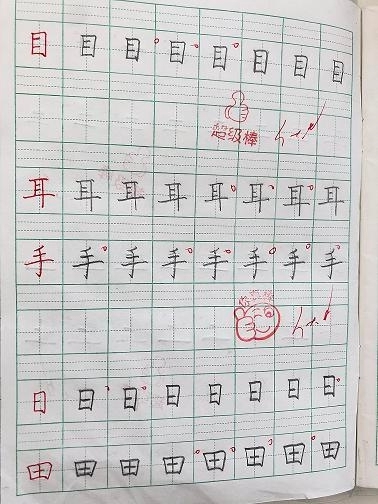 目 目 目 目 目 目 目 目
超级棒
耳 耳 耳 耳 耳 耳 耳 耳
手 手 手 手 手 手 手 手
你真棒
日 日 日 日 日 日 日 日
田 田 田 田 田 田 田 田